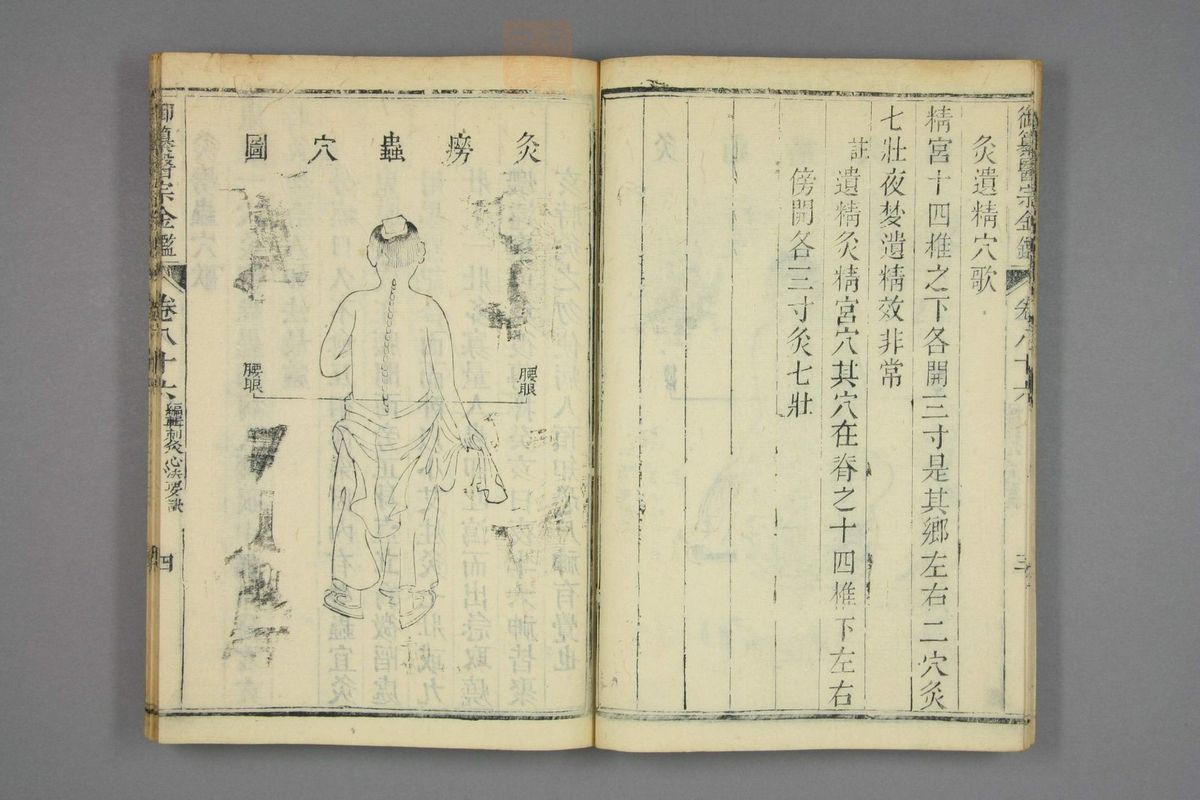 御纂醫宗金鑑
卷八十六
三
灸遺精穴歌
精宮十四椎之下各開三寸是其鄉左右二穴灸
七壯夜梦遺精效非常
註
遺精灸精宮穴其穴在脊之十四椎下左右
傍開各三寸灸七壯
灸癆蟲穴圖
腰眼
腰眼
御纂醫宗金鑑
卷八十六
編輯刺灸心法要訣
四